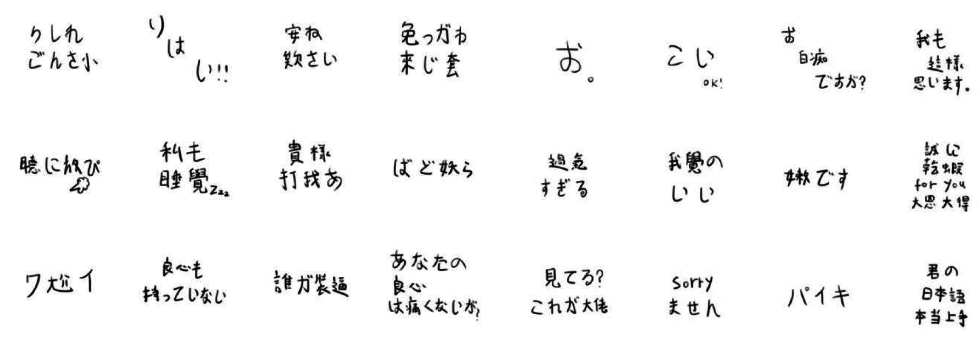 りしれ
ごんさ小
りはい!!
安ね
欸さい
兔っガわ
来じ套
お。
こい
OK!
お
白痴
ですか?
我も
這樣
思います。
聴に放び
私も
睡覺Zzz
貴様
打我あ
ばど妖ら
過氣
すぎる
我覺の
いい
嫩です
誠に
乾蝦
for you
大恩大得
ワ尬イ
良心も
持っていない
誰が裝逼
あなたの
良心
は痛くないが?
見てる?
これが大佬
sorry
ません
パイキ
君の
日本語
本当上手